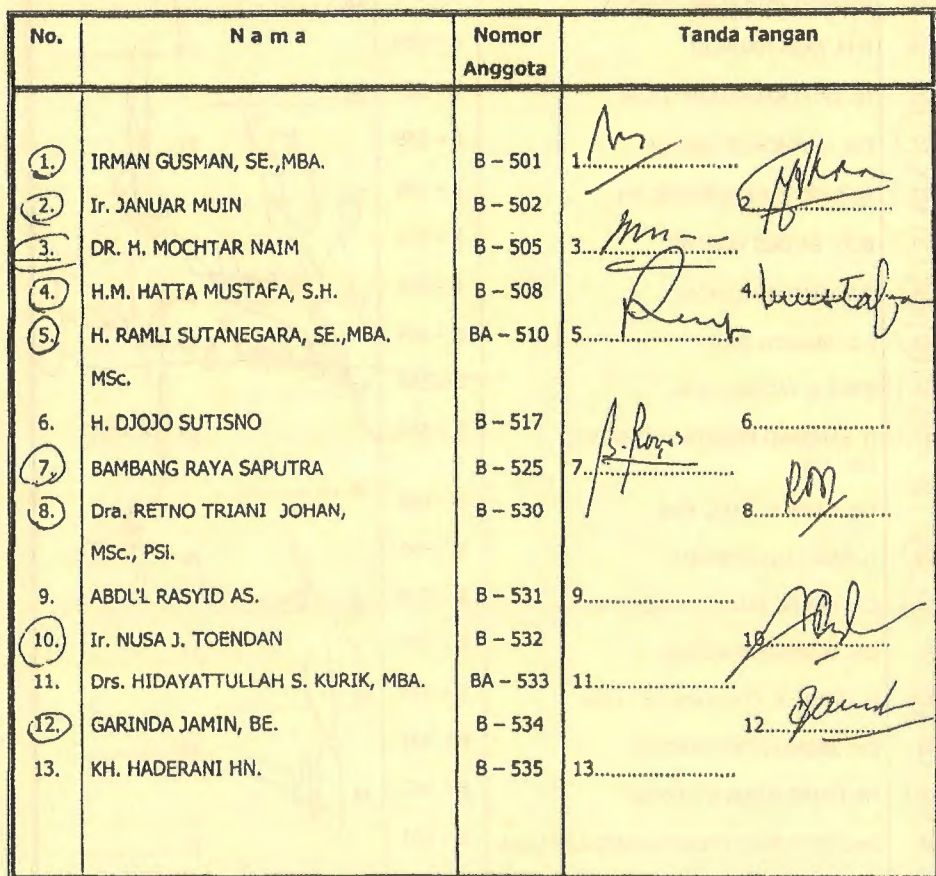 No. N a m a Nomor Anggota Tanda Tangan
1. IRMAN GUSMAN, SE.,MBA. B – 501 1.
2. Ir. JANUAR MUIN B – 502 2.
3. DR. H. MOCHTAR NAIM B – 505 3.
4. H.M. HATTA MUSTAFA, S.H. B – 508 4. Mustafa
5. H. RAMLI SUTANEGARA, SE.,MBA. BA – 510 5.
MSc.
6. H. DJOJO SUTISNO B – 517 6.
7. BAMBANG RAYA SAPUTRA B – 525 7.
8. Dra. RETNO TRIANI JOHAN, B – 530 8.
MSc., PSi.
9. ABDU'L RASYID AS. B – 531 9.
10. Ir. NUSA J. TOENDAN B – 532 10.
11. Drs. HIDAYATTULLAH S. KURIK, MBA. BA – 533 11.
12. GARINDA JAMIN, BE. B – 534 12.
13. KH. HADERANI HN. B – 535 13.